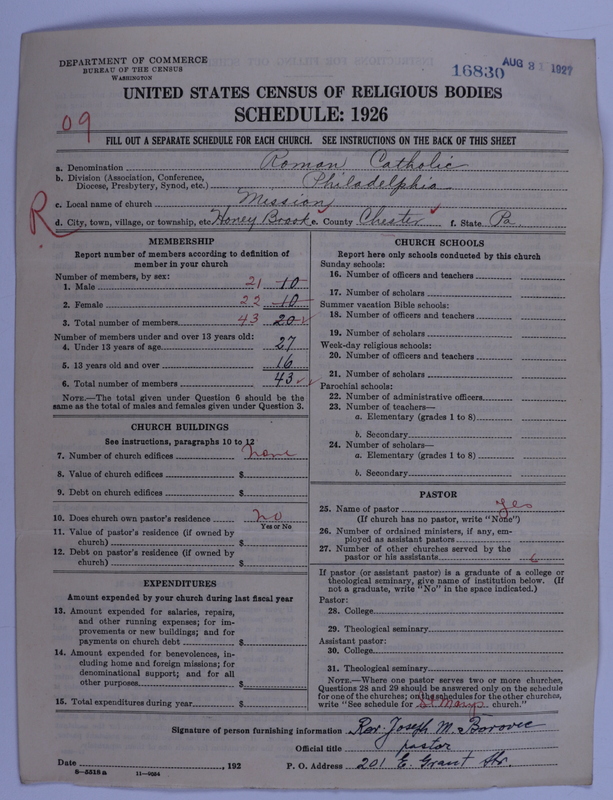 DEPARTMENT OF COMMERCE
BUREAU OF THE CENSUS
WASHINGTON
16830 AUG 31 1927
UNITED STATES CENSUS OF RELIGIOUS BODIES
SCHEDULE: 1926
09
FILL OUT A SEPARATE SCHEDULE FOR EACH CHURCH. SEE INSTRUCTIONS ON THE BACK OF THIS SHEET
a. Denomination Roman Catholic
b. Division (Association, Conference,
Diocese, Presbytery, Synod, etc.) Philadelphia
c. Local name of church Mission
R
d. City, town, village, or township, etc. Honey Brook e. County Chester f. State Pa.
MEMBERSHIP
Report number of members according to definition of
member in your church
Number of members, by sex:
1. Male 21 10
2. Female 22 10
3. Total number of members 43 20
Number of members under and over 13 years old:
4. Under 13 years of age 27
5. 13 years old and over 16
6. Total number of members 43
NOTE.—The total given under Question 6 should be
same as the total of males and females given under Question 3.
CHURCH BUILDINGS
See instructions, paragraphs 10 to 12
7. Number of church edifices none
8. Value of church edifices $
9. Debt on church edifices $
10. Does church own pastor's residence no
Yes or No
11. Value of pastor's residence (if owned by
church) $
12. Debt on pastor's residence (if owned by
church) $
EXPENDITURES
Amount expended by your church during last fiscal year
13. Amount expended for salaries, repairs,
and other running expenses; for im-
provements or new buildings; and for
payments on church debt $
14. Amount expended for benevolences, in-
cluding home and foreign missions; for
denominational support; and for all
other purposes $
15. Total expenditures during year $
CHURCH SCHOOLS
Report here only schools conducted by this church
Sunday schools:
16. Number of officers and teachers
17. Number of scholars
Summer vacation Bible schools:
18. Number of officers and teachers
19. Number of scholars
Week-day religious schools:
20. Number of officers and teachers
21. Number of scholars
Parochial schools:
22. Number of administrative officers
23. Number of teachers—
a. Elementary (grades 1 to 8)
b. Secondary
24. Number of scholars—
a. Elementary (grades 1 to 8)
b. Secondary
PASTOR
25. Name of pastor yes
(If church has no pastor, write "None")
26. Number of ordained ministers, if any, em-
ployed as assistant pastors
27. Number of other churches served by the
pastor or his assistants 6
If pastor (or assistant pastor) is a graduate of a college or
theological seminary, give name of institution below. (If
not a graduate, write "No" in the space indicated.)
Pastor:
28. College
29. Theological seminary
Assistant pastor:
30. College
31. Theological seminary
NOTE.—Where one pastor serves two or more churches,
Questions 28 and 29 should be answered only on the schedule
for one of the churches; on the schedules for the other churches,
write "See schedule for St Marys church."
Signature of person furnishing information Rev. Joseph M. Borovec
Official title pastor
Date , 192 P. O. Address 201 E. Grant Str.
8-5318a 11-9054